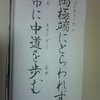 両極端にとらわれず
常に中道を歩む